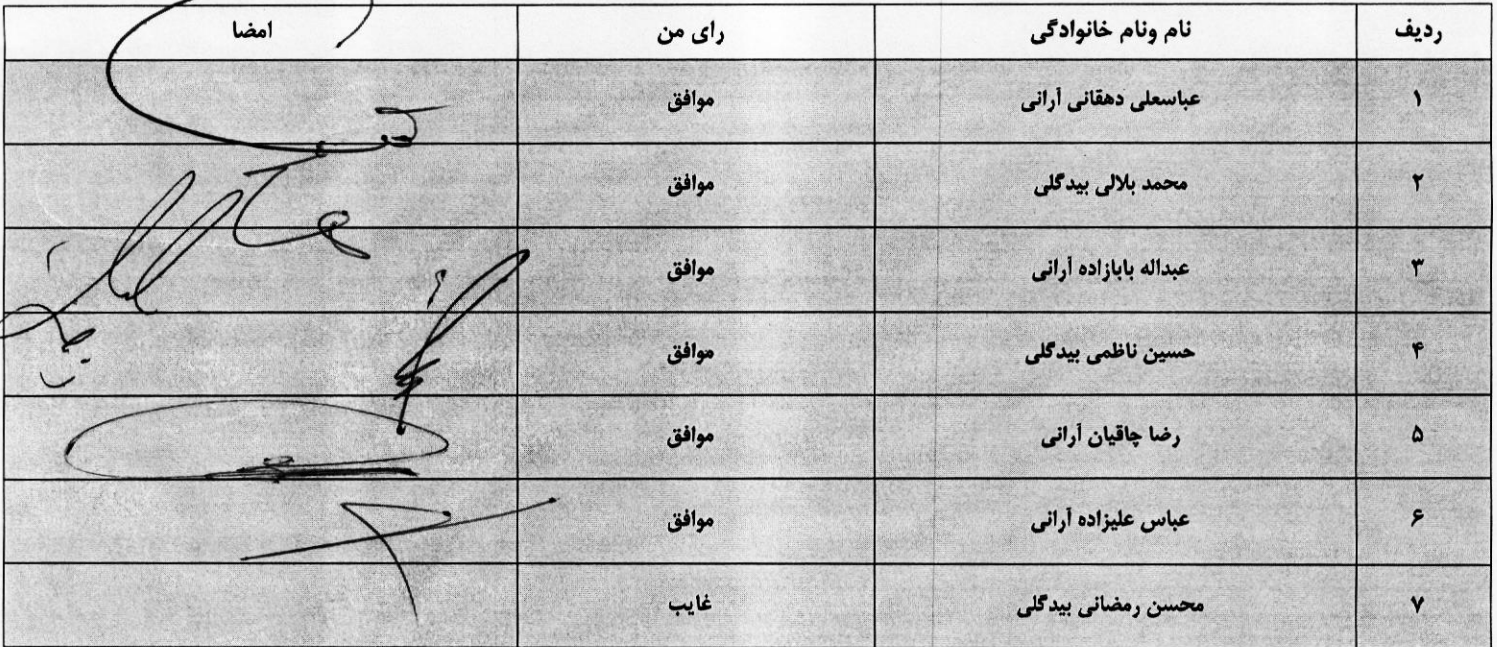 ردیف نام ونام خانوادگی رای من امضا
۱ عباسعلی دهقانی آرانی موافق
۲ محمد بلالی بیدگلی موافق
۳ عبداله بابازاده آرانی موافق
۴ حسین ناظمی بیدگلی موافق
۵ رضا چاقیان آرانی موافق
۶ عباس علیزاده آرانی موافق
۷ محسن رمضانی بیدگلی غایب